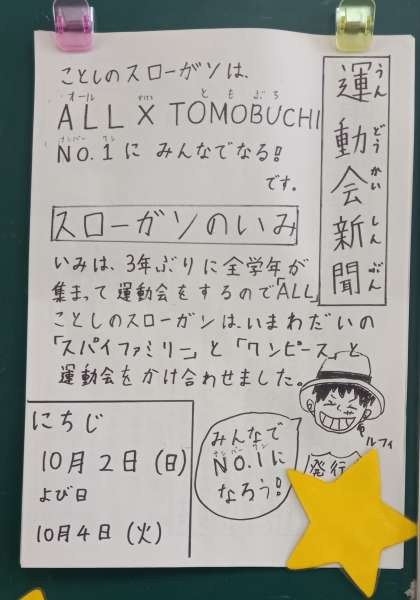 運動会新聞
うんどうかいしんぶん
ことしのスローガンは、
オール ともぶち
ALL X TOMOBUCHI
ナンバー ワン
NO.1に みんなでなる!
です。
スローガンのいみ
いみは、3年ぶりに全学年が
集まって運動会をするので「ALL」
ことしのスローガンは、いまわだいの
「スパイファミリー」と「ワンピース」と
運動会をかけ合わせました。
にちじ
10月2日(日)
よび日
10月4日(火)
みんなで
ナンバーワン
NO.1に
なろう!
ルフィ
発行